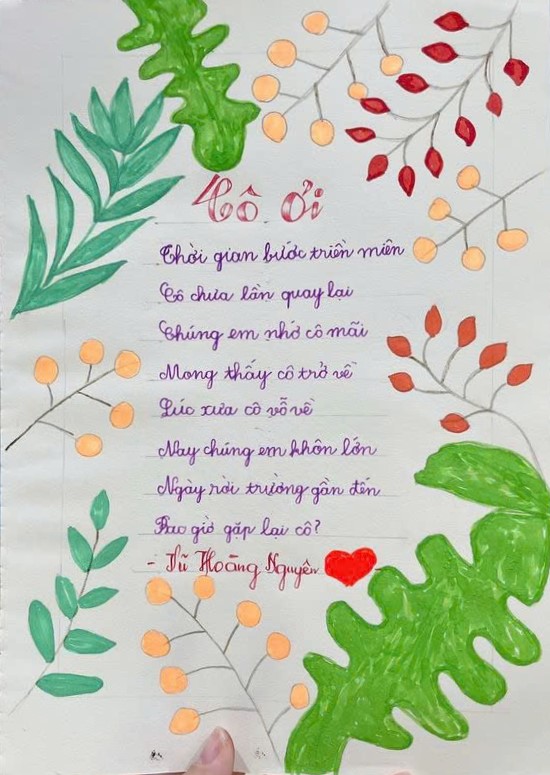 Cô ơi
Thời gian bước triền miên
Cô chưa lần quay lại
Chúng em nhớ cô mãi
Mong thấy cô trở về
Lúc xưa cô vỗ về
Nay chúng em khôn lớn
Ngày rời trường gần đến
Bao giờ gặp lại cô?
- Vũ Hoàng Nguyên